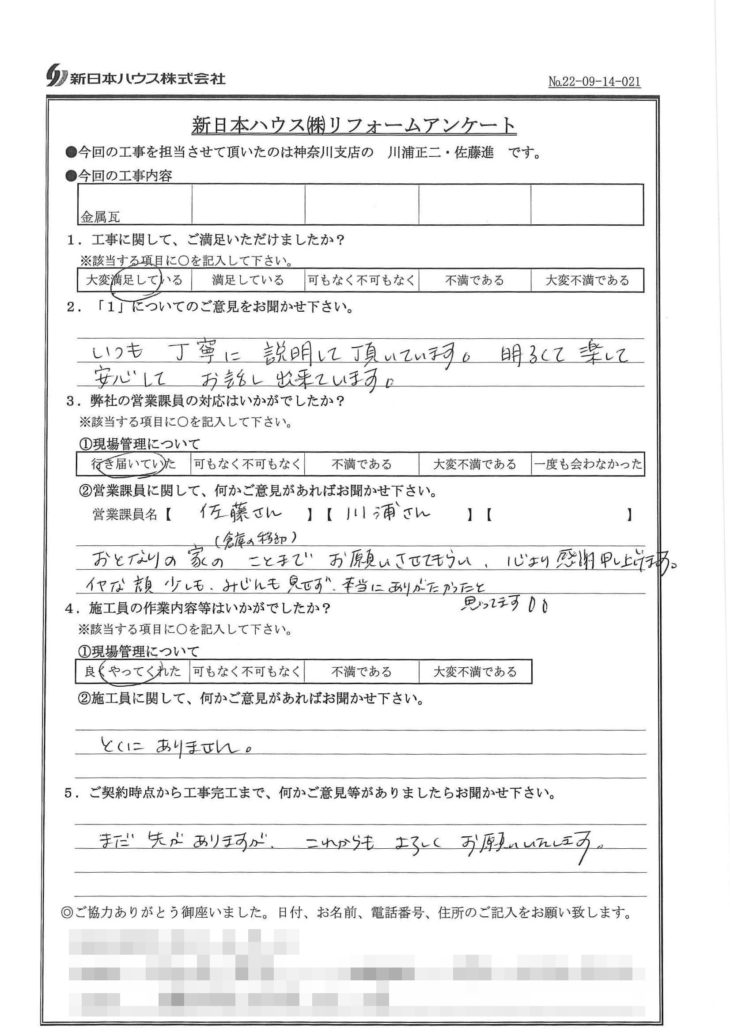 新日本ハウス株式会社
№22-09-14-021
新日本ハウス㈱リフォームアンケート
●今回の工事を担当させて頂いたのは神奈川支店の　川浦正二・佐藤進　です。
●今回の工事内容
金属瓦
1．工事に関して、ご満足いただけましたか？
※該当する項目に○を記入して下さい。
大変満足している　満足している　可もなく不可もなく　不満である　大変不満である
2．「1」についてのご意見をお聞かせ下さい。
いつも 丁寧に 説明して頂いています。 明るくて 楽して
安心して お話し出来ています。
3．弊社の営業課員の対応はいかがでしたか？
※該当する項目に○を記入して下さい。
①現場管理について
行き届いていた　可もなく不可もなく　不満である　大変不満である　一度も会わなかった
②営業課員に関して、何かご意見があればお聞かせ下さい。
営業課員名【 佐藤さん 】【 川浦さん 】【 】
(倉庫の移動)
おとなりの 家の ことまで お願いさせてもらい、心より 感謝申し上げます。
イヤな顔 少しも、みじんも見せず、本当にありがたかったと
思ってます
4．施工員の作業内容等はいかがでしたか？
※該当する項目に○を記入して下さい。
①現場管理について
良くやってくれた　可もなく不可もなく　不満である　大変不満である
②施工員に関して、何かご意見があればお聞かせ下さい。
とくに ありません。
5．ご契約時点から工事完工まで、何かご意見等がありましたらお聞かせ下さい。
まだ 先が ありますが、 これからも よろしく お願いいたします。
◎ご協力ありがとう御座いました。日付、お名前、電話番号、住所のご記入をお願い致します。